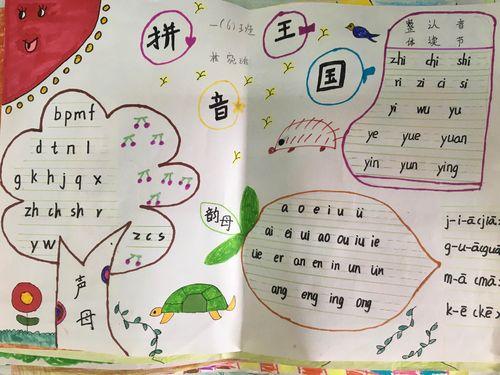 拼音王国
一(6)班
整 认 音
体 读 节
zhi chi shi
ri zi ci si
yi wu yu
ye yue yuan
yin yun ying
b p m f
d t n l
g k h j q x
zh ch sh r
z c s
y w
声母
韵母
a o e i u ü
ai ei ui ao ou iu ie
üe er an en in un ün
ang eng ing ong
j-i-ā(jiā)
g-u-ā(guā
m-ā (mā)
k-ē (kē)